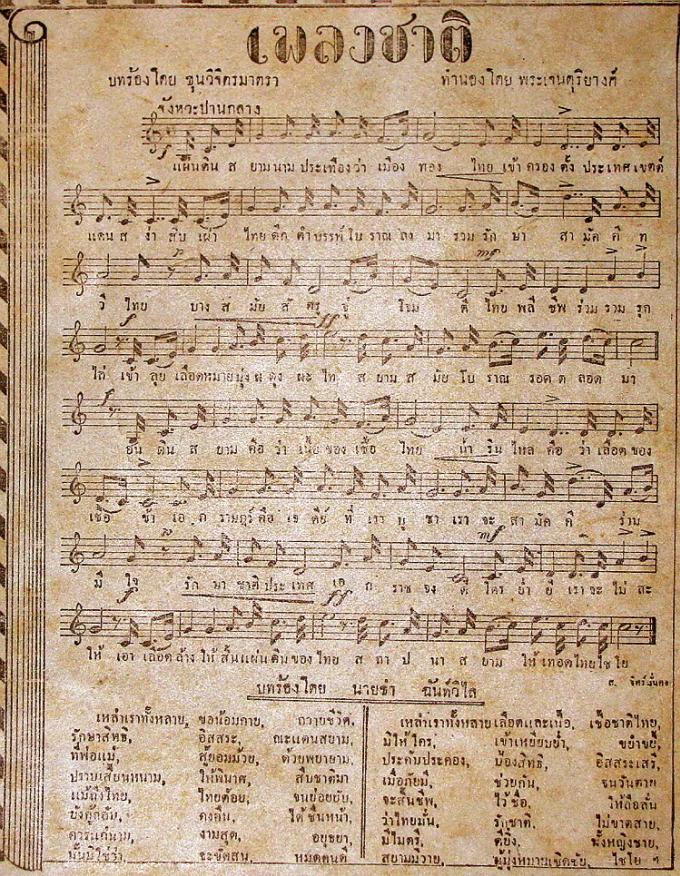 เพลงชาติ
บทร้องโดย ขุนวิจิตรมาตรา ทำนองโดย พระเจนดุริยางค์
จังหวะปานกลาง
f
แผ่นดิน ส ยามนาม ประเทืองว่า เมือง ทอง ไทย เข้า ครอง ตั้ง ประเทศ เขตต์
แดน ส ง่า สืบ เผ่า ไทย ดึก ดำ บรรพ์ โบ ราณ ลง มา รวม รัก ษา สา มัค คี ท
p mf
วี ไทย บาง ส มัย ศั ตรู จู่ โจม ตี ไทย พลี ชีพ ร่วม รวม รุก
f ff
ไล่ เข้า ลุย เลือด หมาย มุ่ง ผ ดุง ผะ ไท ส ยาม ส มัย โบ ราณ รอด ต ลอด มา
f
อัน ดิน ส ยาม คือ ว่า เนื้อ ของ เชื้อ ไทย น้ำ ริน ไหล คือ ว่า เลือด ของ
เชื้อ ข้า เอ ก ราษฎร์ คือ เจ ดีย์ ที่ เรา บู ชา เรา จะ สา มัค คี ร่วม
mf
มี ใจ รัก ษา ชาติ ประ เทศ เอ ก ราช จง ดี ใคร ย่ำ ยี เรา จะ ไม่ ละ
f ff
ให้ เอา เลือด ล้าง ให้ สิ้น แผ่น ดิน ของ ไทย ส ถา ป นา ส ยาม ให้ เทอด ไทย ไช โย
บทร้องโดย นายฉ่ำ ฉันท์วิไล
เหล่าเราทั้งหลาย, ขอน้อมกาย, ถวายชีวิต.
รักษาสิทธิ์, อิสสระ, ณะแดนสยาม,
ที่พ่อแม่, สู้ยอมม้วย, ด้วยพยายาม,
ปราบเสี้ยนหนาม, ให้พินาศ, สืบชาติมา
แม้ถึงไทย, ไทยด้อย, จนย่อยยับ,
ยังกู้กลับ, คงคืน, ได้ชื่นหน้า,
ควรแก่นาม, งามสุด, อยุธยา,
นั้นมิใช่ว่า, จะขัดสน, หมดคนดี
เหล่าเราทั้งหลาย เลือดและเนื้อ, เชื้อชาติไทย,
มิให้ใคร, เข้าเหยียบย่ำ, ขยำขยี้,
ประคับประคอง, ป้องสิทธิ์, อิสสระเสรี,
เมื่อภัยมี, ช่วยกัน, จนวันตาย
จะสิ้นชีพ, ไว้ชื่อ, ให้ลือลั่น
ว่าไทยมั่น, รักชาติ, ไม่ขาดสาย,
มีไมตรี, ดียิ่ง, ทั้งหญิงชาย,
สยามมิวาย, ผู้มุ่งหมายเชิดชัย, ไชโย ฯ